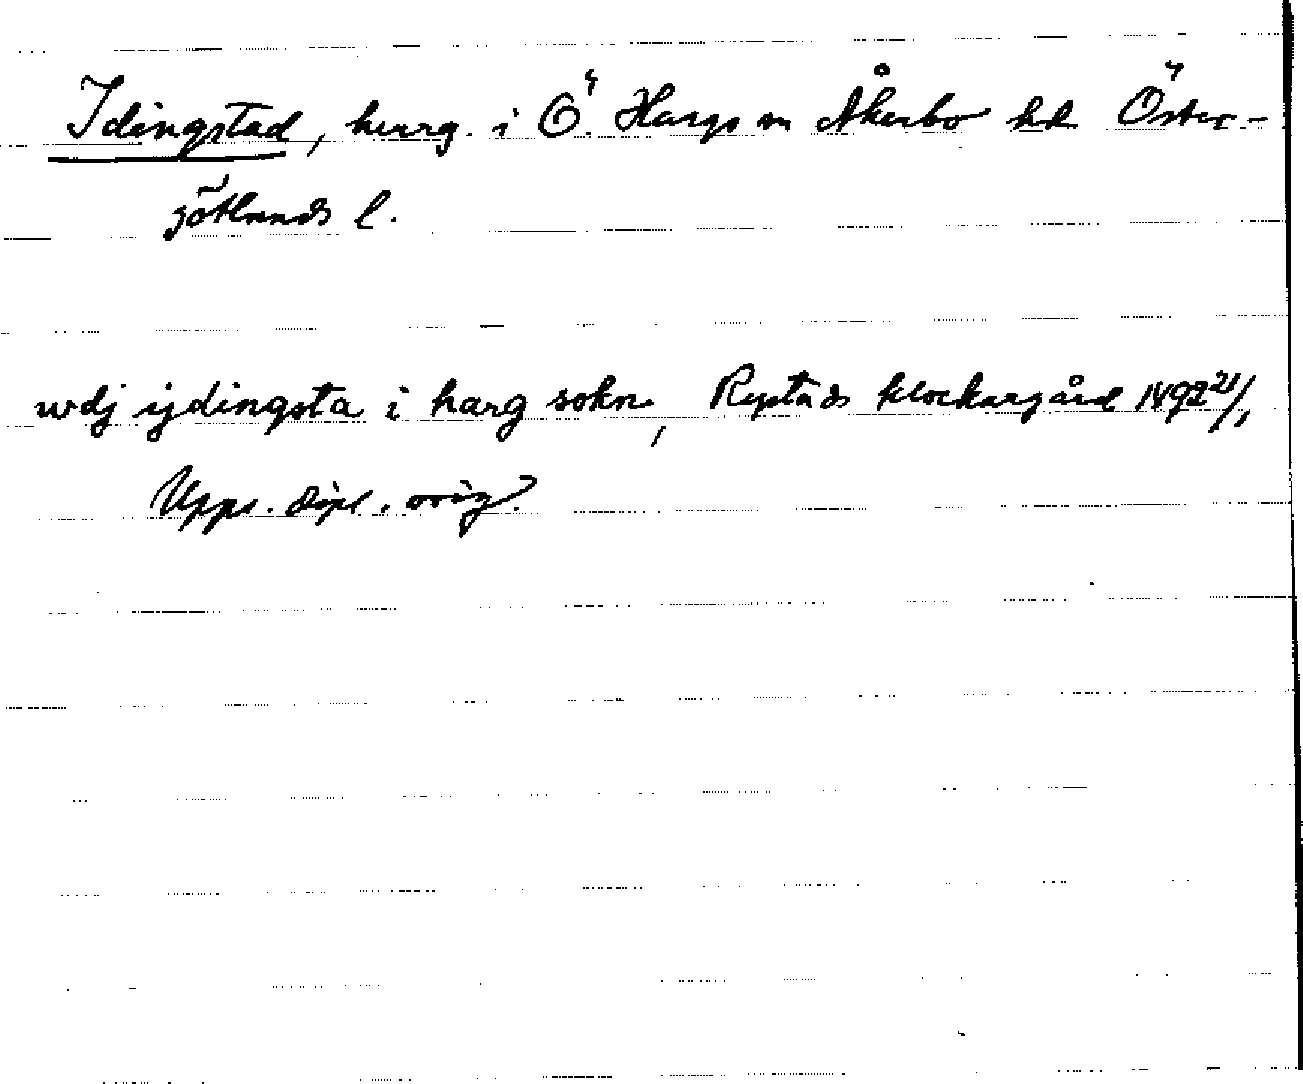 Idingstad, herrg. i Ö. Hargs sn Åkerbo hd Öster-
götlands l.
wdj ijdingsta i harg sokn, Rystads klockargård 1492 21/1
Upps. dipl. orig.